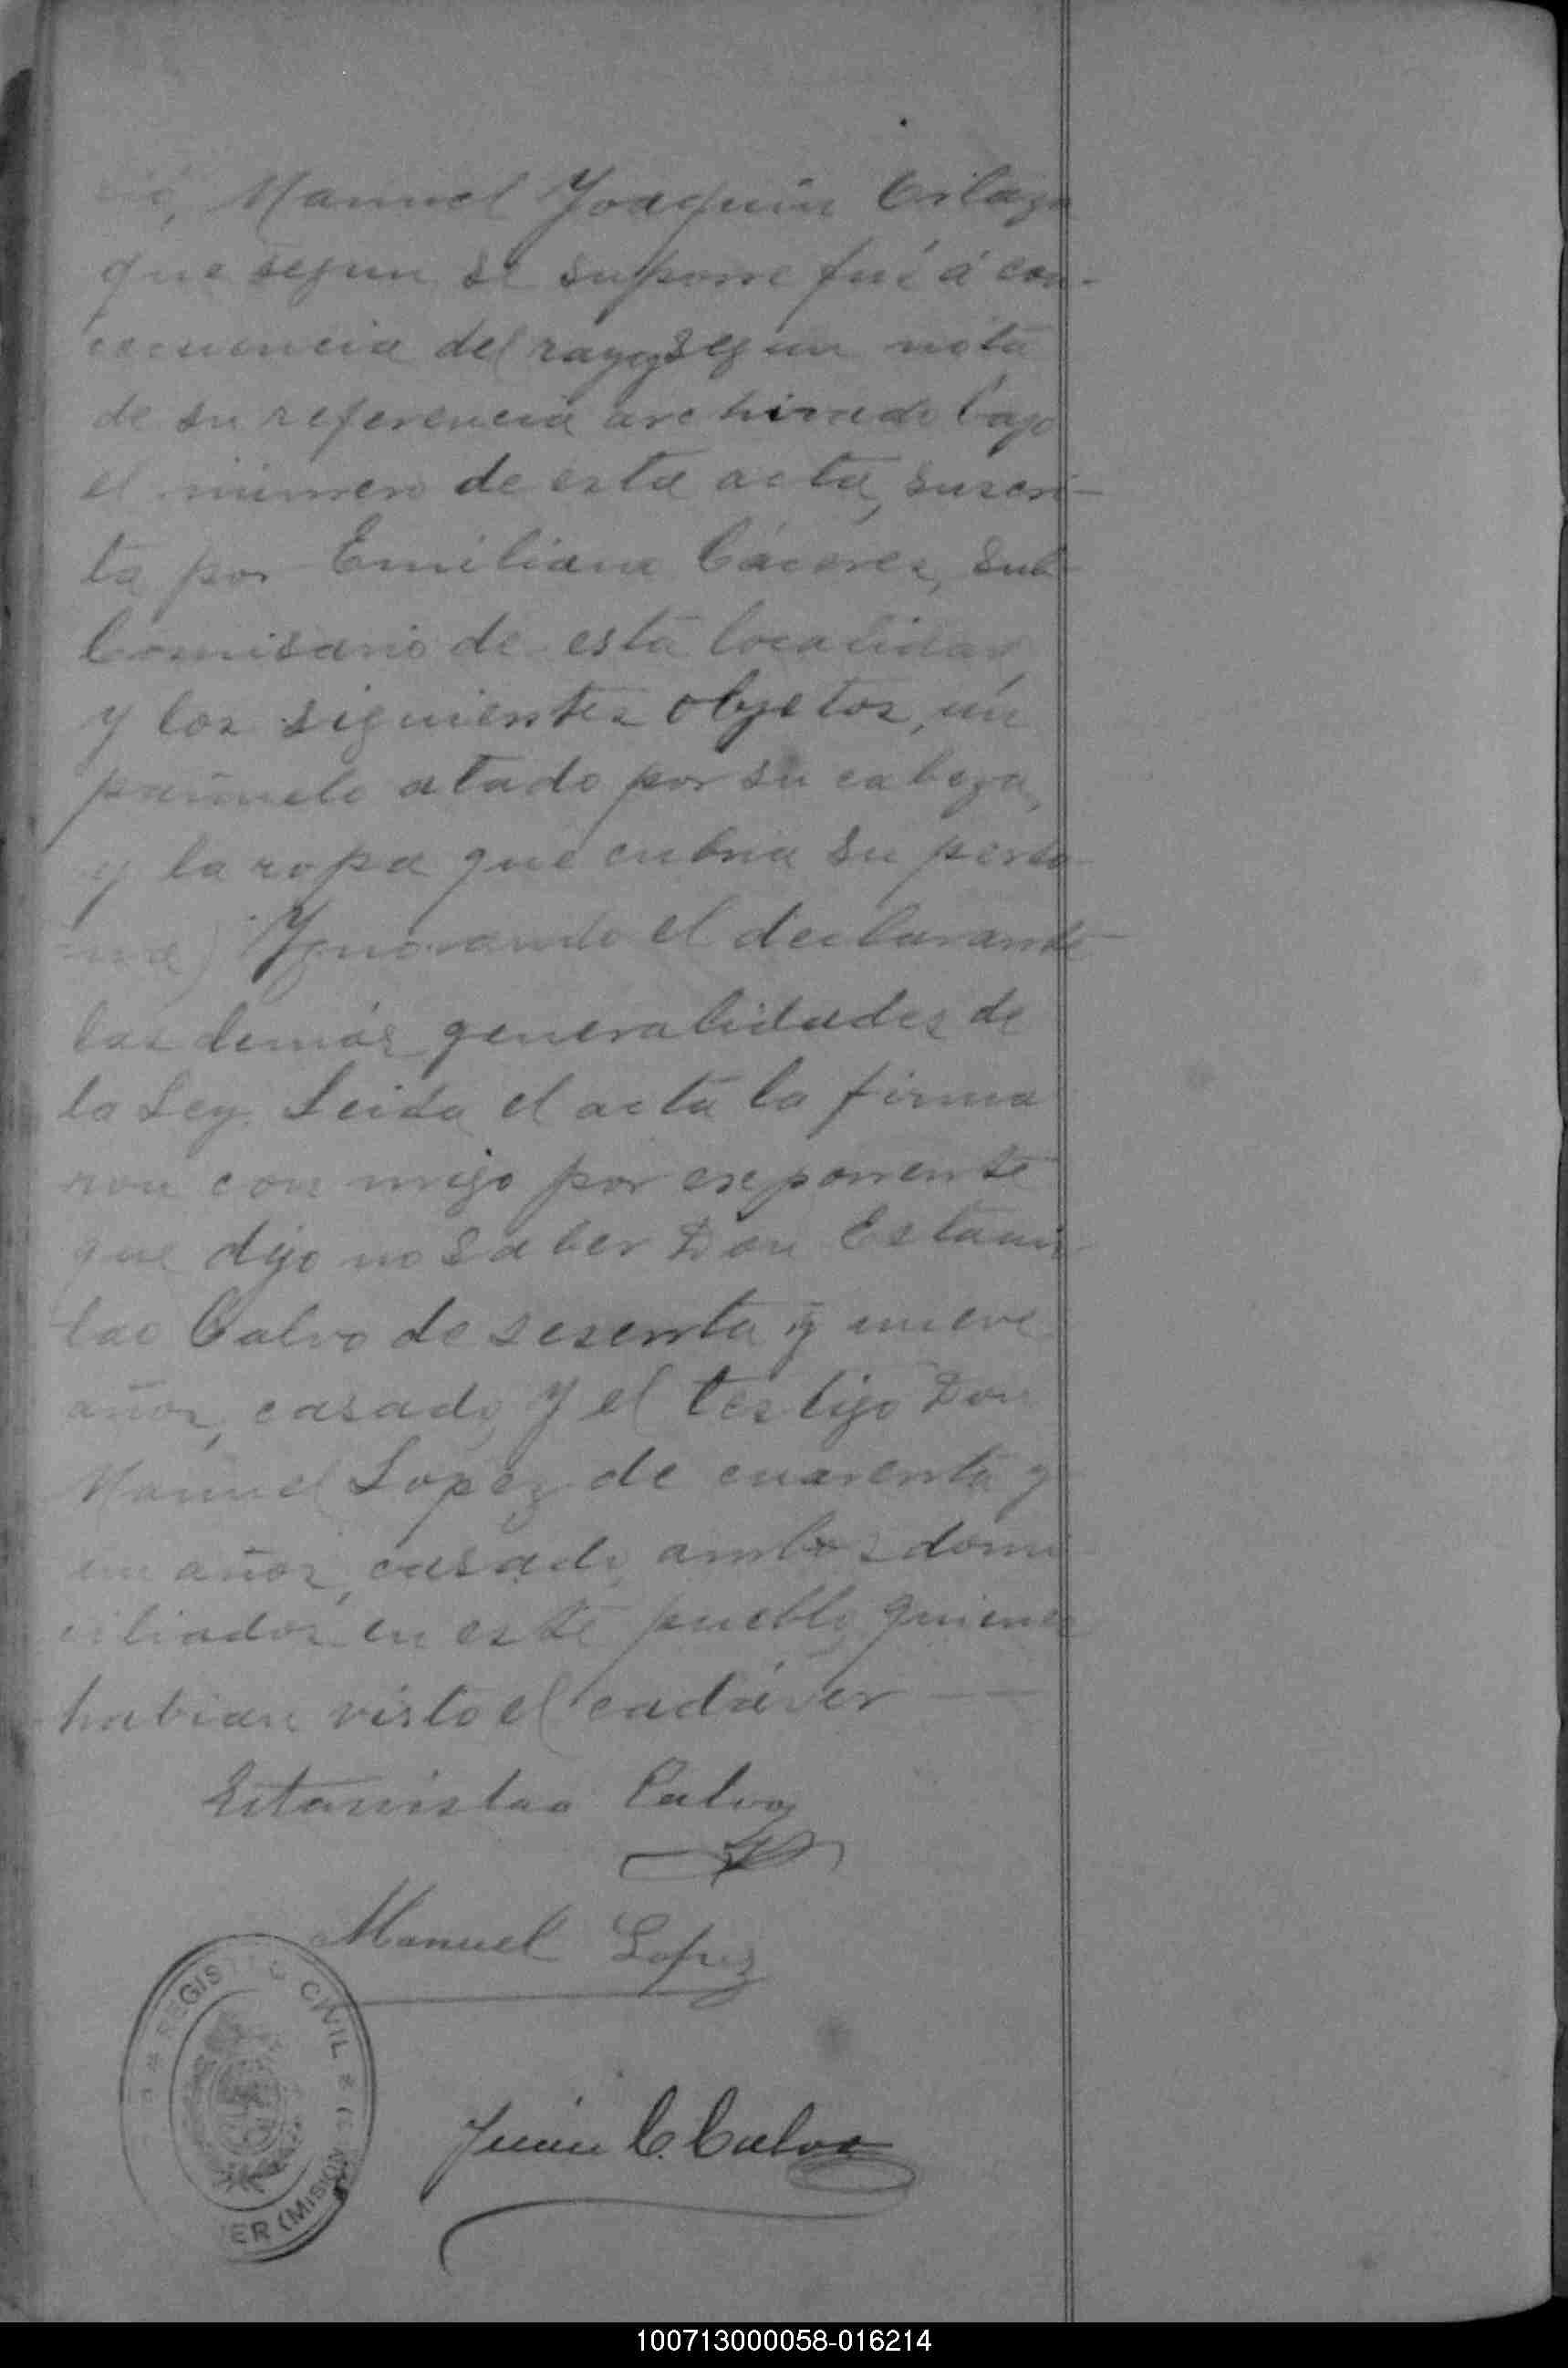 ció, Manuel Joaquin
que segun se supone fué á con-
cecuencia del rayo, segun nota
de su referencia archivado bajo
el número de esta acta, suscri-
ta por Emiliano Cáceres, Sub-
Comisario de esta localidad,
y los siguientes objetos, un
pañuelo atado por su cabeza,
y la ropa que cubria su perso-
na) Ygnorando el declarante
las demás generalidades de
la Ley. Leida el acta la firma
ron con migo por exponente
que dijo no saber Don Estanis-
lao Calvo de sesenta y nueve
años, casado, y el testigo Don
Manuel Lopez de cuarenta y
un años, casado, ambos domi
ciliados en este pueblo, quienes
habian visto el cadáver —
Estanislao Calvo
Manuel Lopez
REGISTRO CIVIL
ER (MISION
Juan C. Calvo
100713000058-016214